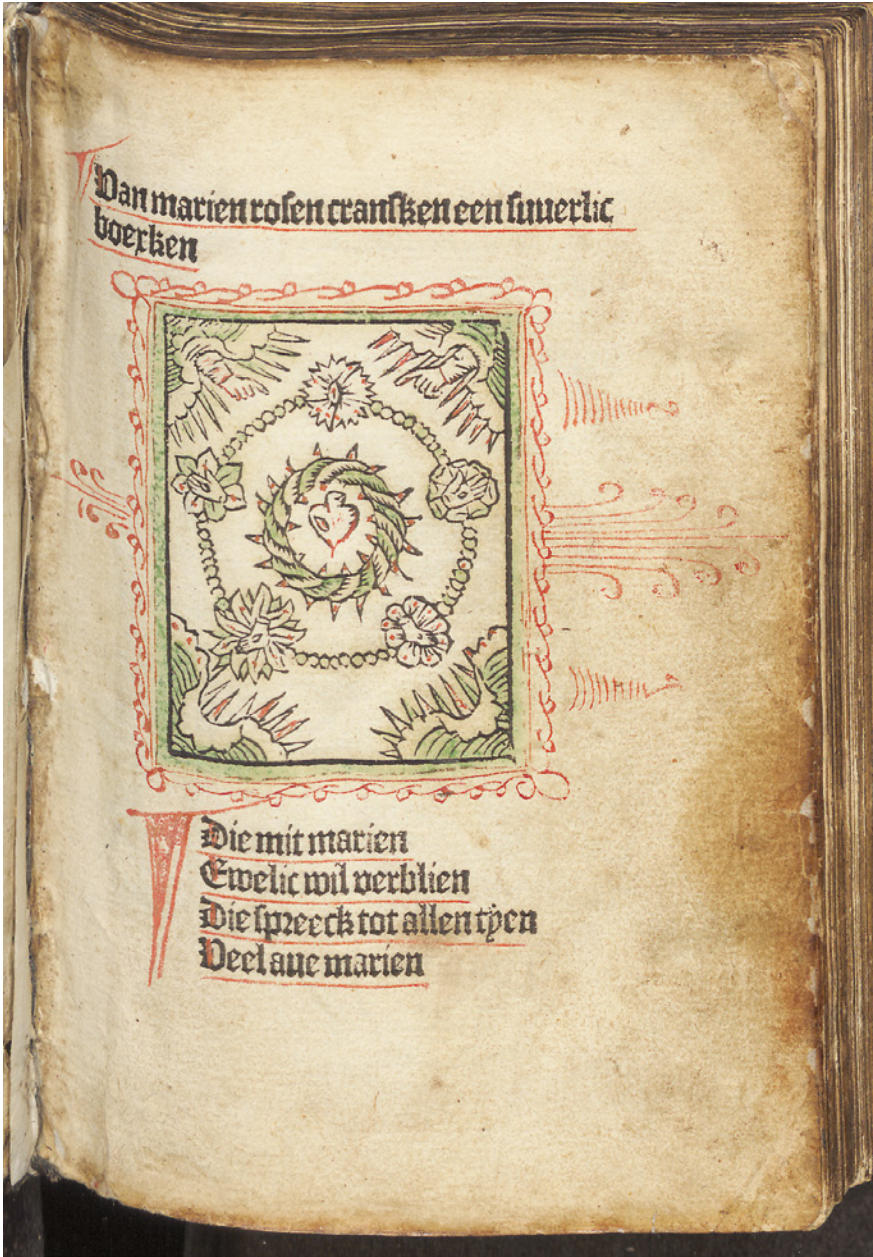 Van marien rosen cransken een suuerlic
boexken
Die mit marien
Ewelic wil verblien
Die spreeck tot allen tyen
Veel aue marien